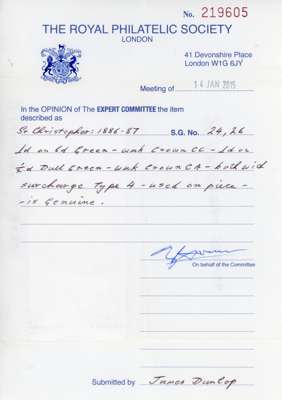 No. 219605
THE ROYAL PHILATELIC SOCIETY
LONDON
41 Devonshire Place
London W1G 6JY
Meeting of 14 JAN 2015
In the OPINION of The EXPERT COMMITTEE the item
described as
St Christopher: 1886-87 S.G. No. 24, 26
1d on 6d Green - wmk Crown CC - 1d on
½d Dull Green - wmk Crown CA - both with
surcharge Type 4 - used on piece -
- is genuine.
On behalf of the Committee
Submitted by James Dunlop